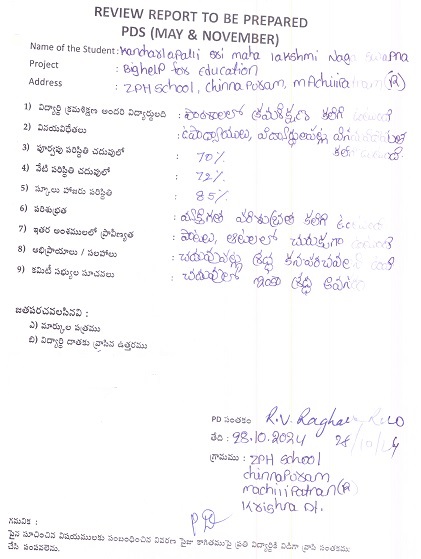 REVIEW REPORT TO BE PREPARED
PDS (MAY & NOVEMBER)
Name of the Student: Kandarlapalli sri maha lakshmi Naga swapna
Project : Bighelp for Education
Address : ZPH School, chinna Puram, (R)
1) విద్యార్థి క్రమశిక్షణ అందరి విద్యార్థులది : పాఠశాలలో క్రమశిక్షణ కలిగి
2) వినయవిధేతలు : ఉపాధ్యాయులు,
3) పూర్వపు పరిస్థితి చదువులో : 70%
4) నేటి పరిస్థితి చదువులో : 72%
5) స్కూలు హాజరు పరిస్థితి : 85%
6) పరిశుభ్రత : వ్యక్తిగత పరిశుభ్రత కలిగి
7) ఇతర అంశములలో ప్రావీణ్యత : పాటలు, ఆటలలో చురుకుగా
8) అభిప్రాయాలు / సలహాలు : చదువుపట్ల శ్రద్ధ
9) కమిటీ సభ్యుల సూచనలు : చదువులో ఇంకా శ్రద్ధ
జతపరచవలసినవి :
ఎ) మార్కుల పత్రము
బి) విద్యార్థి దాతకు వ్రాసిన ఉత్తరము
PD సంతకం : R.V. Raghava
తేది : 28.10.2024 28/10/24
గ్రామము : ZPH School
chinnaPuram
machiliPatnam (R)
Krishna Dt.
PD
గమనిక :
పైన సూచించిన విషయములకు సంబంధించిన వివరణ పైజా కాగితముపై ప్రతి విద్యార్థికి విడిగా వ్రాసి సంతకము
చేసి పంపవలెను.